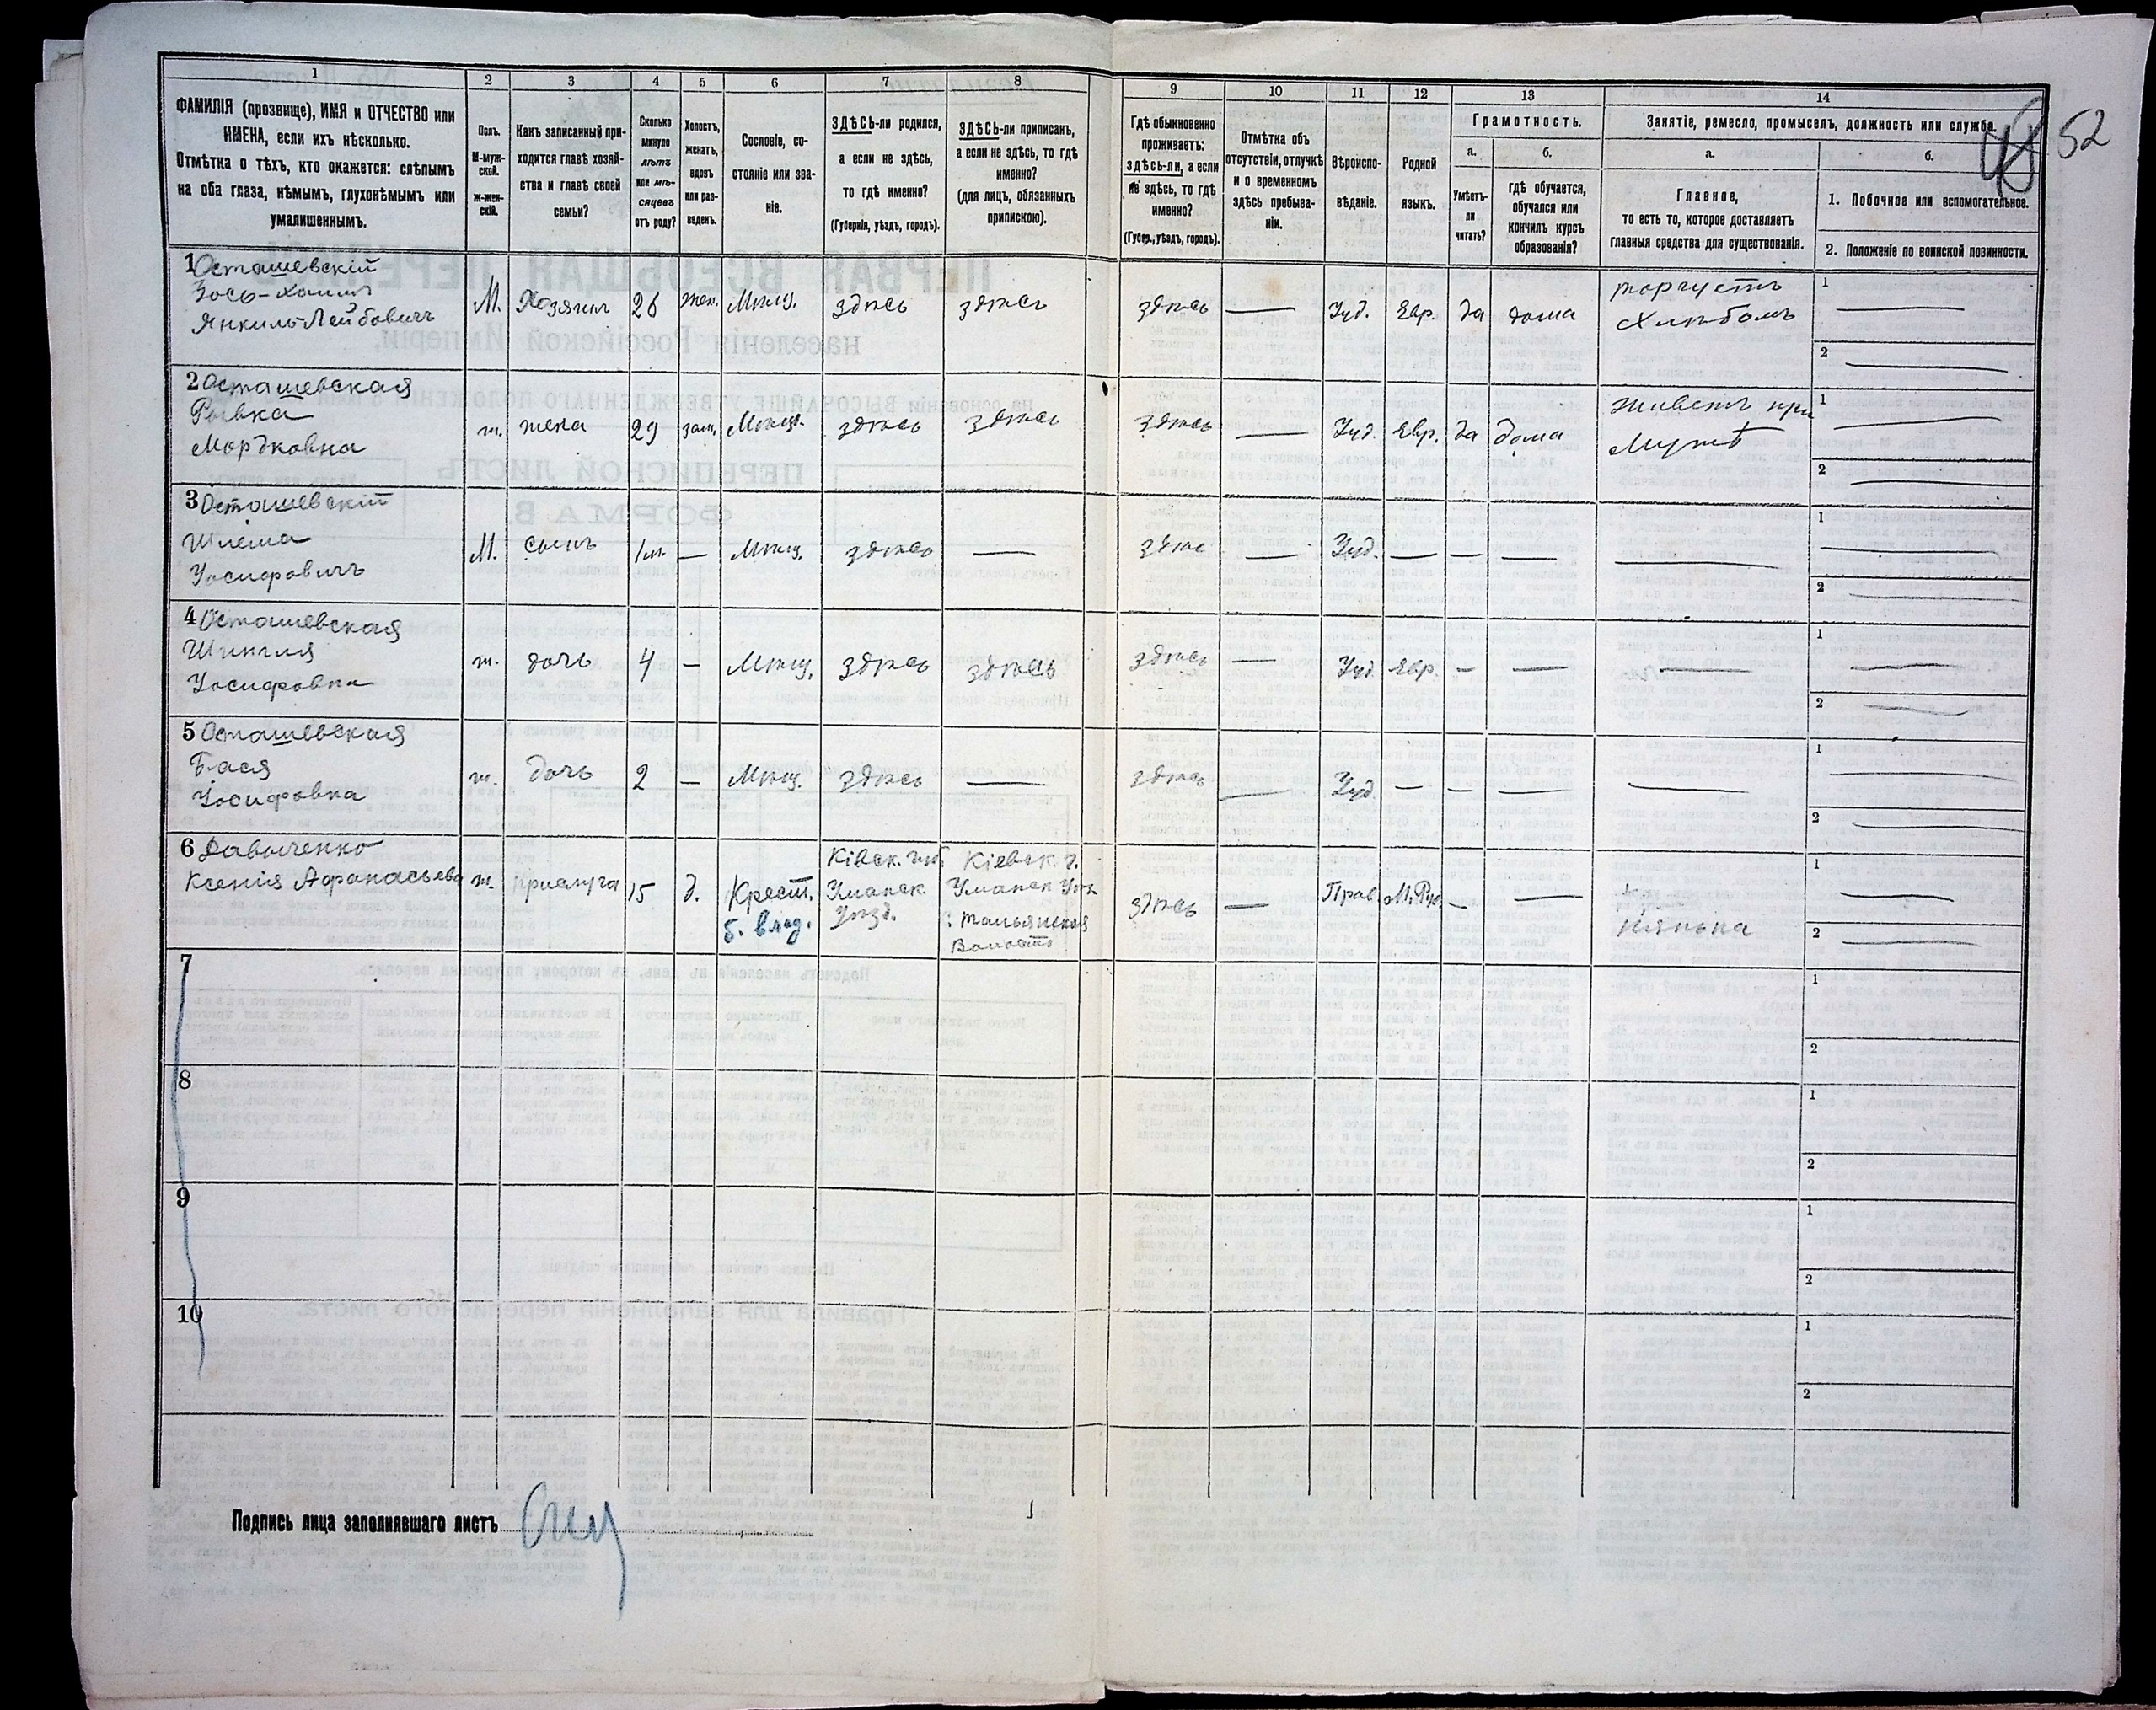 1 2 3 4 5 6 7 8 9 10 11 12 13 14
ФАМИЛІЯ (прозвище), ИМЯ и ОТЧЕСТВО или
ИМЕНА, если ихъ нѣсколько.
Отмѣтка о тѣхъ, кто окажется: слѣпымъ
на оба глаза, нѣмымъ, глухонѣмымъ или
умалишеннымъ.
Полъ.
М-муж-
ской.
Ж-жен-
скій.
Какъ записанный при-
ходится главѣ хозяй-
ства и главѣ своей
семьи?
Сколько
минуло
лѣтъ
или мѣ-
сяцевъ
отъ роду?
Холостъ,
женатъ,
вдовъ
или раз-
веденъ.
Сословіе, со-
стояніе или зва-
ніе.
ЗДѢСЬ-ли родился,
а если не здѣсь,
то гдѣ именно?
(Губернія, уѣздъ, городъ).
ЗДѢСЬ-ли приписанъ,
а если не здѣсь, то гдѣ
именно?
(для лицъ, обязанныхъ
припискою).
Гдѣ обыкновенно
проживаетъ:
здѣсь-ли, а если
не здѣсь, то гдѣ
именно?
(Губер., уѣздъ, городъ).
Отмѣтка объ
отсутствіи, отлучкѣ
и о временномъ
здѣсь пребыва-
ніи.
Вѣроиспо-
вѣданіе.
Родной
языкъ.
Грамотность.
а.
Умѣетъ-
ли
читать?
б.
гдѣ обучается,
обучался или
кончилъ курсъ
образованія?
Занятіе, ремесло, промыселъ, должность или служба.
а.
Главное,
то есть то, которое доставляетъ
главныя средства для существованія.
б.
1. Побочное или вспомогательное.
2. Положеніе по воинской повинности.
52
1 Осташевскій
Янкиль-Лейбовичъ
М. Хозяинъ 26 жен. Мѣщ. здѣсь здѣсь здѣсь — Іуд. Евр. да дома
торгуетъ
Хлѣбомъ
1 —
2 —
2 Осташевская
Рывка
Мордковна
ж. жена 29 зам. Мѣщ. здѣсь здѣсь здѣсь — Іуд. Евр. да дома
живетъ при
Мужѣ
1 —
2 —
3 Осташевскій
Шлема
Іосифовичъ
М. сынъ — Мѣщ. здѣсь — здѣс — Іуд. — — — —
1 —
2 —
4 Осташевская
Іосифовна
ж. дочь 4 — Мѣщ. здѣсь здѣсь здѣсь — Іуд. Евр. — — —
1 —
2 —
5 Осташевская
Бася
Іосифовна
ж. дочь 2 — Мѣщ. здѣсь — здѣсь — Іуд. — — — —
1 —
2 —
6 Давыченко
Ксенія Афанасьева
ж. прислуга 15 д. Крест.
б. влад.
Уманск.
Уѣзд.
Кіевск. г.
Уманск
Тальянская
Волость
здѣсь — Прав. М.Рус. — —
нянька
1 —
2 —
7
1
2
8
1
2
9
1
2
10
1
2
Подпись лица заполнявшаго листъ